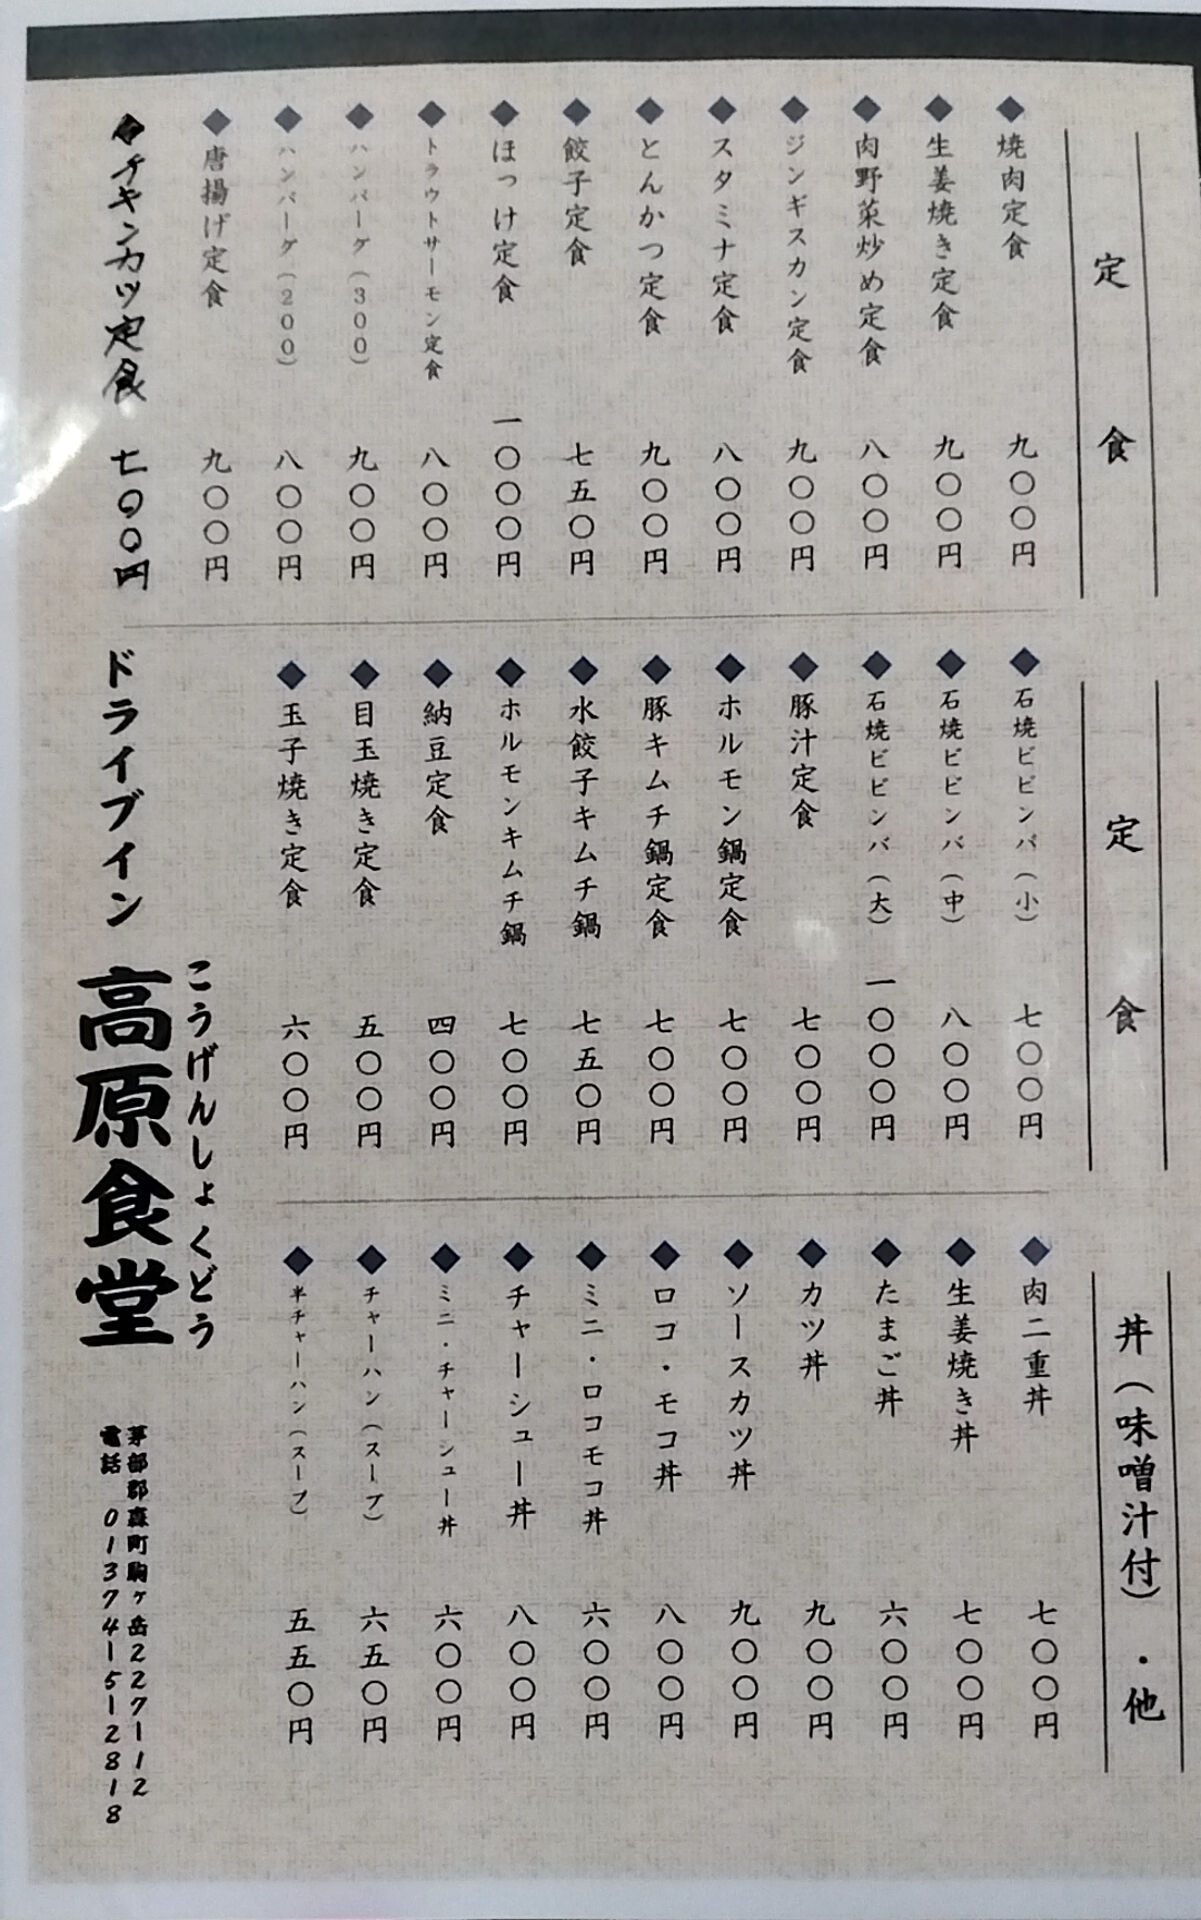 定食
◆焼肉定食 九〇〇円
◆生姜焼き定食 九〇〇円
◆肉野菜炒め定食 八〇〇円
◆ジンギスカン定食 九〇〇円
◆スタミナ定食 八〇〇円
◆とんかつ定食 九〇〇円
◆餃子定食 七五〇円
◆ほっけ定食 一〇〇〇円
◆トラウトサーモン定食 八〇〇円
◆ハンバーグ(300) 九〇〇円
◆ハンバーグ(200) 八〇〇円
◆唐揚げ定食 九〇〇円
◆チキンカツ定食 七〇〇円
定食
◆石焼ビビンバ(小) 七〇〇円
◆石焼ビビンバ(中) 八〇〇円
◆石焼ビビンバ(大) 一〇〇〇円
◆豚汁定食 七〇〇円
◆ホルモン鍋定食 七〇〇円
◆豚キムチ鍋定食 七〇〇円
◆水餃子キムチ鍋 七五〇円
◆ホルモンキムチ鍋 七〇〇円
◆納豆定食 四〇〇円
◆目玉焼き定食 五〇〇円
◆玉子焼き定食 六〇〇円
丼(味噌汁付)・他
◆肉二重丼 七〇〇円
◆生姜焼き丼 七〇〇円
◆たまご丼 六〇〇円
◆カツ丼 九〇〇円
◆ソースカツ丼 九〇〇円
◆ロコ・モコ丼 八〇〇円
◆ミニ・ロコモコ丼 六〇〇円
◆チャーシュー丼 八〇〇円
◆ミニ・チャーシュー丼 六〇〇円
◆チャーハン(スープ) 六五〇円
◆半チャーハン(スープ) 五五〇円
こうげんしょくどう
ドライブイン 高原食堂
茅部郡森町駒ヶ岳227-12
電話 01374-5-2818